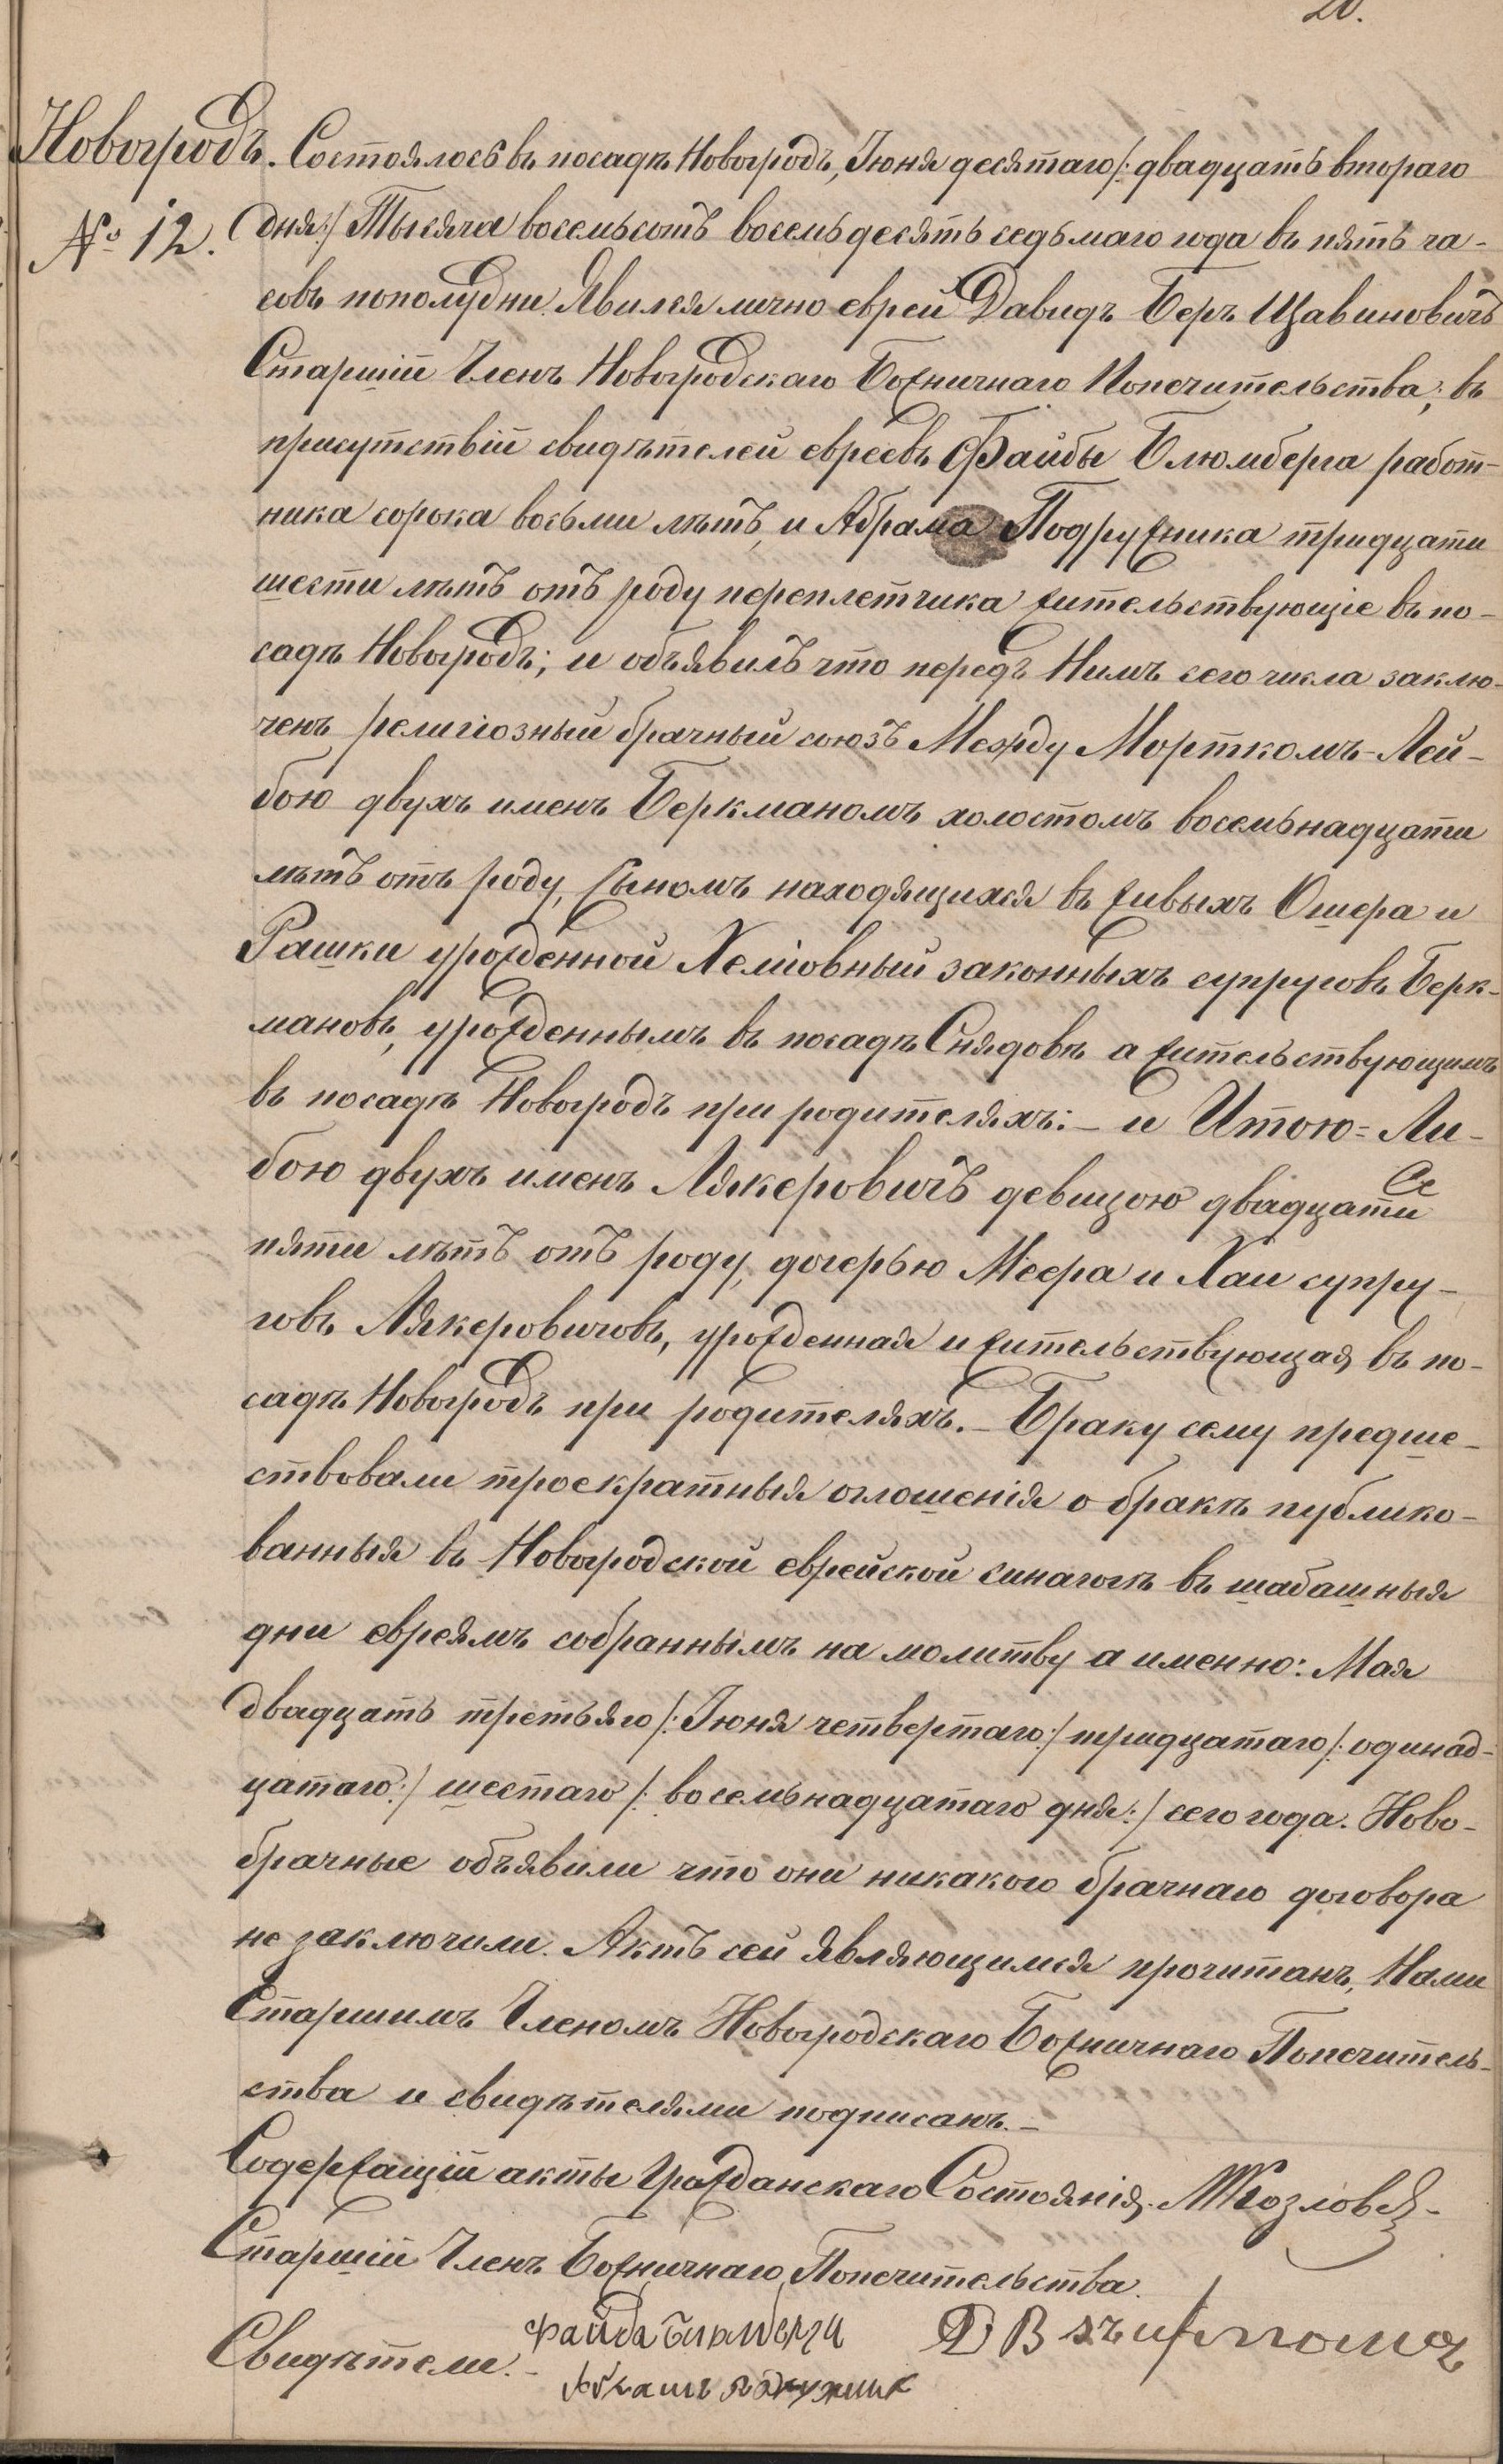 20.
Новогродъ. Состоялось въ посадѣ Новогродъ, Іюня десятаго /: двадцать втораго
№ 12. дня:/ Тысяча восемьсотъ восемьдесять седьмаго года въ пять ча-
совъ пополудни. Явился лично еврей Давидъ Беръ Щавиновичъ
Старшій Членъ Новогродскаго Божничнаго Попечительства; въ
присутствій свидѣтелей евреевъ Файбы Блюмберга работ-
ника сорока восьми лѣтъ, и Абрама Подружника тридцати
шести лѣтъ отъ роду переплетчика жительствующіе въ по-
садѣ Новогродъ; и объявилъ что передъ Нимъ сего числа заклю-
ченъ религіозный брачный союзъ Между Морткомъ-Лей-
бою двухъ именъ Беркманомъ холостомъ восемьнадцати
лѣтъ отъ роду, сыномъ находящихся въ живыхъ Ошера и
Рашки урожденной Хеміовный законныхъ супруговъ Берк-
мановъ, урожденнымъ въ посадѣ Снядовѣ а жительствующимъ
въ посадѣ Новогродъ при родителяхъ:- и Итою=Ли-
бою двухъ именъ Лякеровичъ девицою двадцати
пяти лѣтъ отъ роду, дочерью Меера и Хаи супру-
говъ Лякеровичовъ, урожденная и жительствующая въ по-
садѣ Новогродъ при родителяхъ.- Браку сему предше-
ствовали троекратныя оглошенія о бракѣ публико-
ванныя въ Новогродской еврейской синагогѣ въ шабашныя
дни евреямъ собраннымъ на молитву а именно: Мая
двадцать третьяго /: Іюня четвертаго:/ тридцатаго /: одинад-
цатаго:/ шестаго /: восемьнадцатаго дня:/ сего года. Ново-
брачные объявили что они никакого брачнаго договора
не заключили. Актъ сей являющимся прочитанъ, Нами
Старшимъ Членомъ Новогродскаго Божничнаго Попечитель-
ства и свидѣтелями подписанъ.-
Содержащій акты Гражданскаго Состоянія. МКозловс
Старшій Членъ Божничнаго Попечительства.
Свидѣтели.- Файба Блюмберг Д Б
Абрамъ Подружник